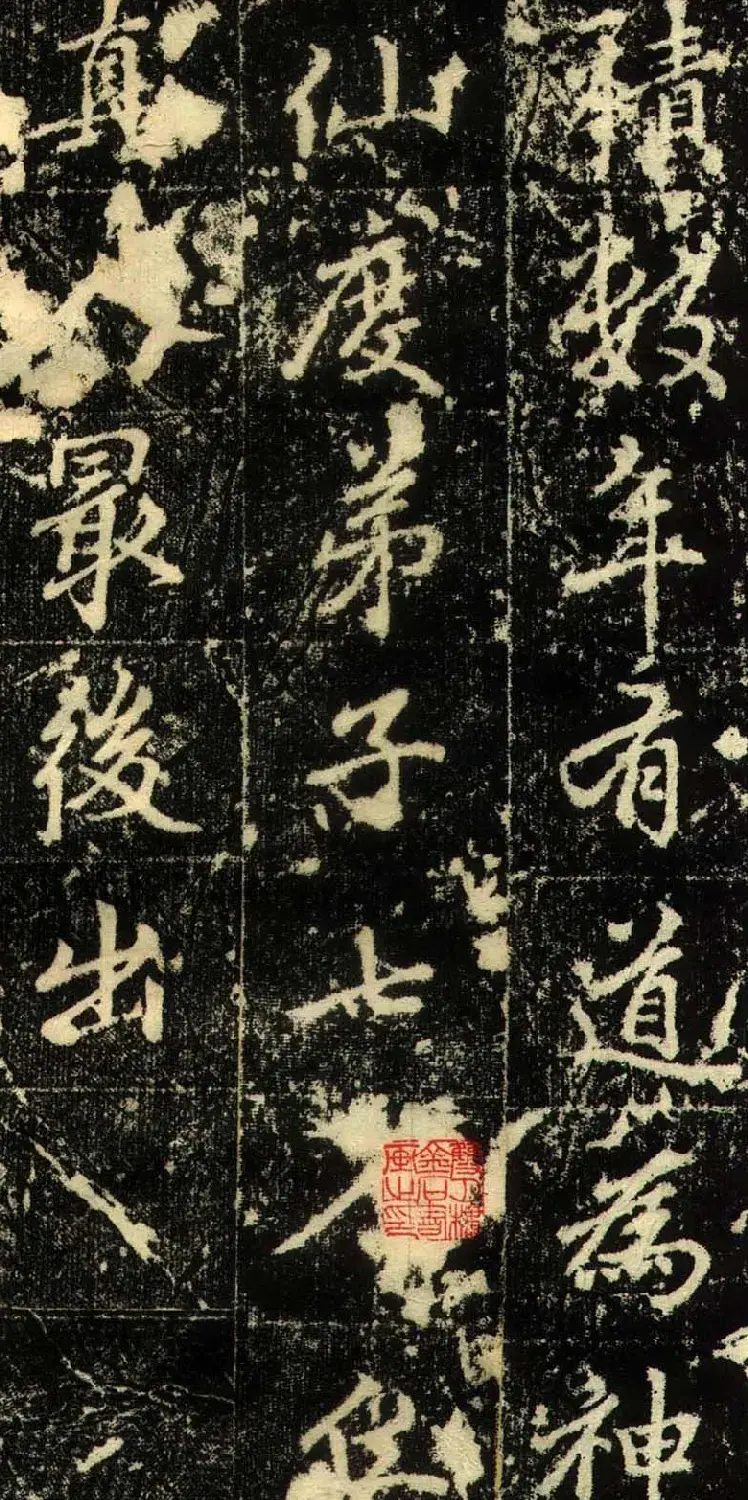 積數年有道為神
仙度弟子七
真最後出